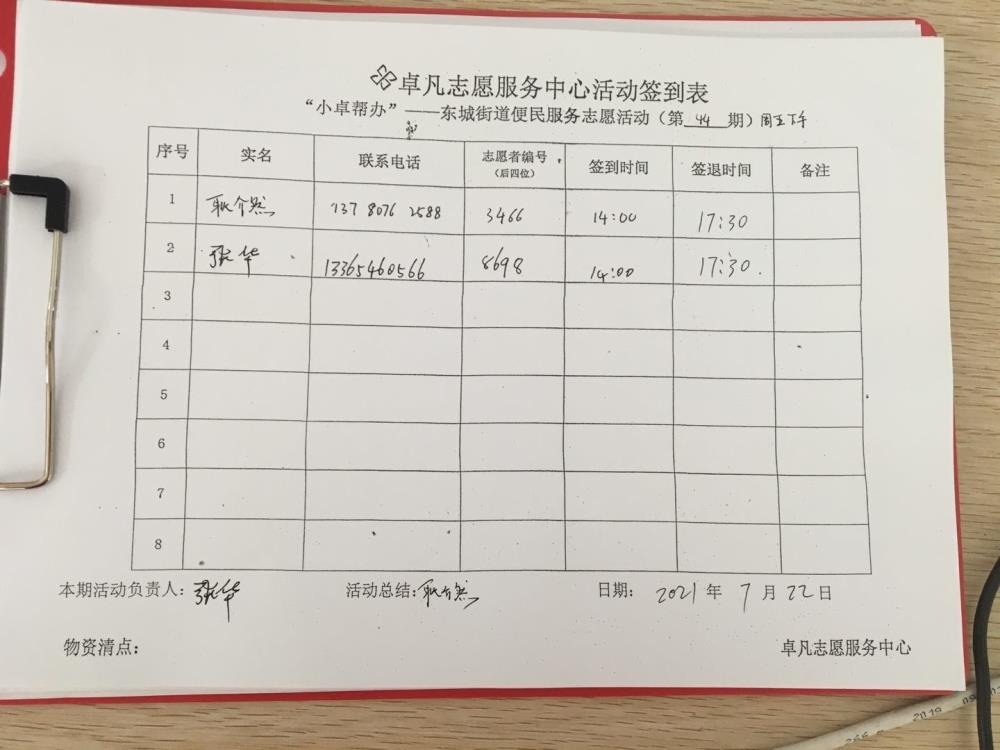 卓凡志愿服务中心活动签到表
“小卓帮办”——东城街道便民服务志愿活动（第 44 期）周五下午
序号 实名 联系电话 志愿者编号（后四位） 签到时间 签退时间 备注
1 耿介然 137 8076 2588 3466 14:00 17:30
2 张华 13365460566 8698 14:00 17:30.
3
4
5
6
7
8
本期活动负责人：张华 活动总结：耿介然 日期： 2021 年 7 月 22 日
物资清点： 卓凡志愿服务中心
2019